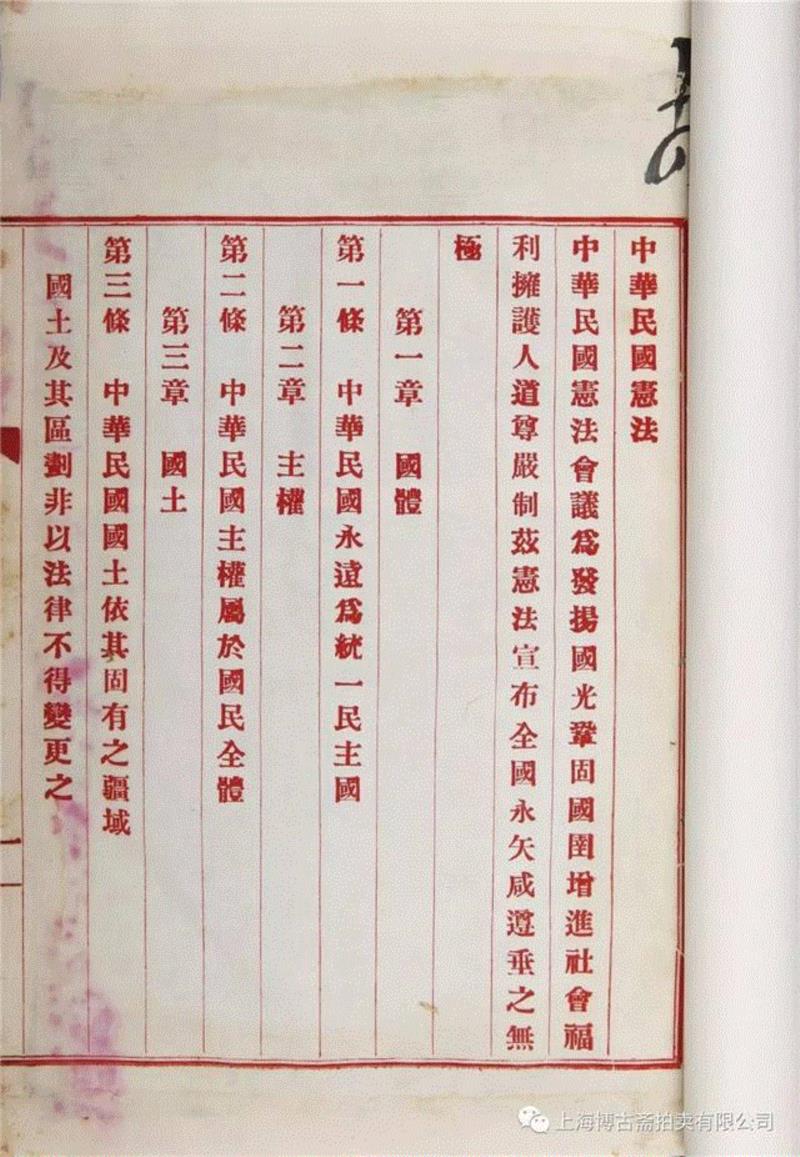 中華民國憲法
中華民國憲法會議爲發揚國光鞏固國圉增進社會福
利擁護人道尊嚴制茲憲法宣布全國永矢咸遵垂之無
極
第一章　國體
第一條　中華民國永遠爲統一民主國
第二章　主權
第二條　中華民國主權屬於國民全體
第三章　國土
第三條　中華民國國土依其固有之疆域
國土及其區劃非以法律不得變更之
一
上海博古斋拍卖有限公司